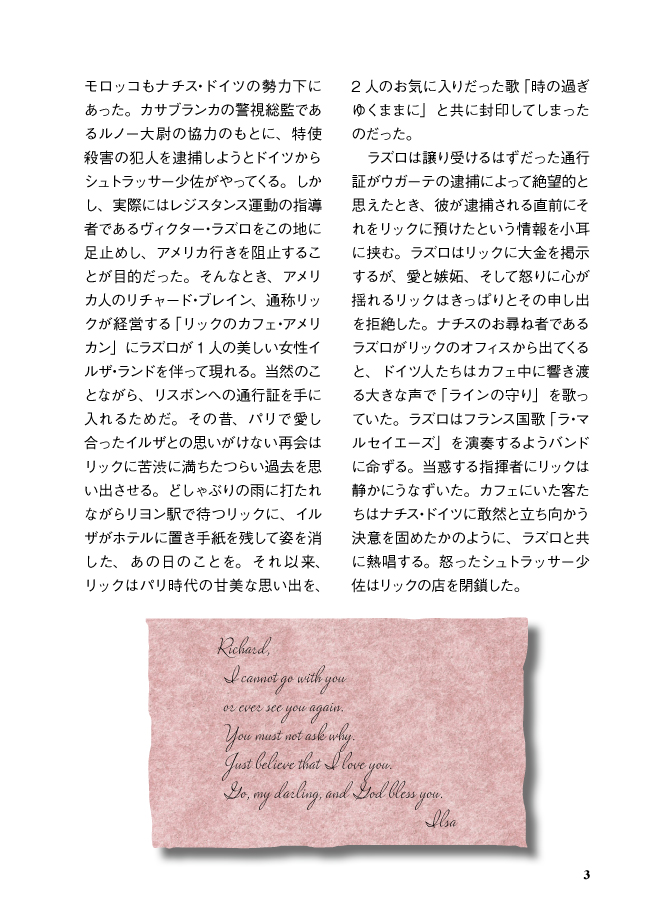 モロッコもナチス・ドイツの勢力下に
あった。カサブランカの警視総監であ
るルノー大尉の協力のもとに、特使
殺害の犯人を逮捕しようとドイツから
シュトラッサー少佐がやってくる。しか
し、実際にはレジスタンス運動の指導
者であるヴィクター・ラズロをこの地に
足止めし、アメリカ行きを阻止するこ
とが目的だった。そんなとき、アメリ
カ人のリチャード・ブレイン、通称リッ
クが経営する「リックのカフェ・アメリ
カン」にラズロが1人の美しい女性イ
ルザ・ランドを伴って現れる。当然のこ
とながら、リスボンへの通行証を手に
入れるためだ。その昔、パリで愛し
合ったイルザとの思いがけない再会は
リックに苦渋に満ちたつらい過去を思
い出させる。どしゃぶりの雨に打たれ
ながらリヨン駅で待つリックに、イル
ザがホテルに置き手紙を残して姿を消
した、あの日のことを。それ以来、
リックはパリ時代の甘美な思い出を、
2人のお気に入りだった歌「時の過ぎ
ゆくままに」と共に封印してしまった
のだった。
　ラズロは譲り受けるはずだった通行
証がウガーテの逮捕によって絶望的と
思えたとき、彼が逮捕される直前にそ
れをリックに預けたという情報を小耳
に挟む。ラズロはリックに大金を掲示
するが、愛と嫉妬、そして怒りに心が
揺れるリックはきっぱりとその申し出
を拒絶した。ナチスのお尋ね者である
ラズロがリックのオフィスから出てくる
と、ドイツ人たちはカフェ中に響き渡
る大きな声で「ラインの守り」を歌っ
ていた。ラズロはフランス国歌「ラ・マ
ルセイエーズ」を演奏するようバンド
に命ずる。当惑する指揮者にリックは
静かにうなずいた。カフェにいた客た
ちはナチス・ドイツに敢然と立ち向かう
決意を固めたかのように、ラズロと共
に熱唱する。怒ったシュトラッサー少
佐はリックの店を閉鎖した。
Richard,
I cannot go with you
or ever see you again.
You must not ask why.
Just believe that I love you.
Go, my darling, and God bless you.
Ilsa
3